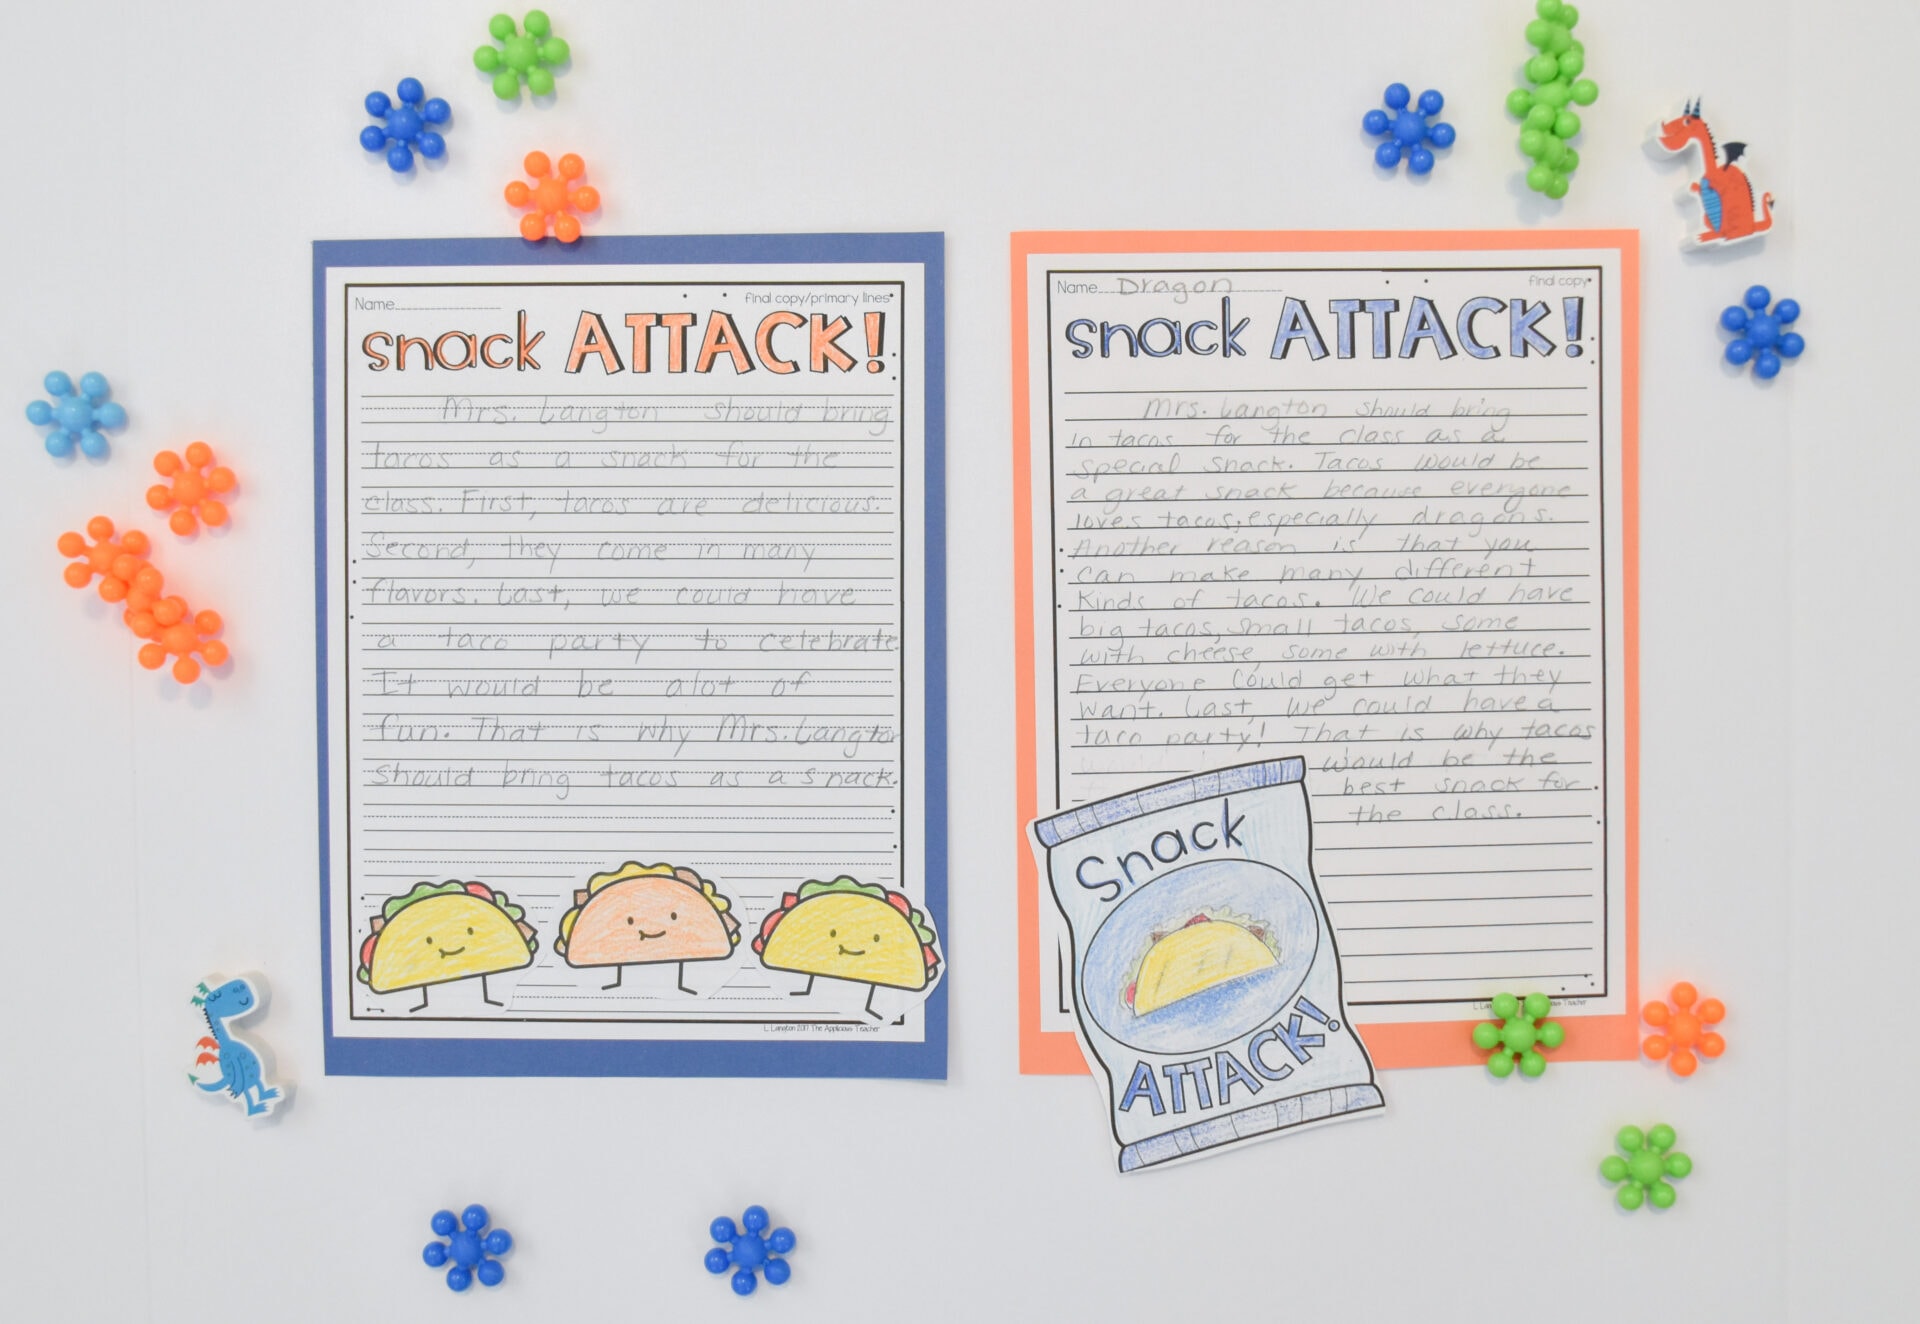 Name
final copy/primary lines
snack ATTACK!
Mrs. Langton should bring
tacos as a snack for the
class. First, tacos are delicious.
Second, they come in many
flavors. Last, we could have
a taco party to celebrate.
It would be alot of
fun. That is why Mrs. Langton
should bring tacos as a snack.
L. Langton 2017 The Applicious Teacher
Name Dragon
final copy
snack ATTACK!
Mrs. Langton should bring
in tacos for the class as a
special snack. Tacos would be
a great snack because everyone
loves tacos, especially dragons.
Another reason is that you
can make many different
kinds of tacos. We could have
big tacos, small tacos, some
with cheese, some with lettuce.
Everyone could get what they
want. Last, we could have a
taco party! That is why tacos
would be the
best snack for
the class.
Teacher
Snack
ATTACK!